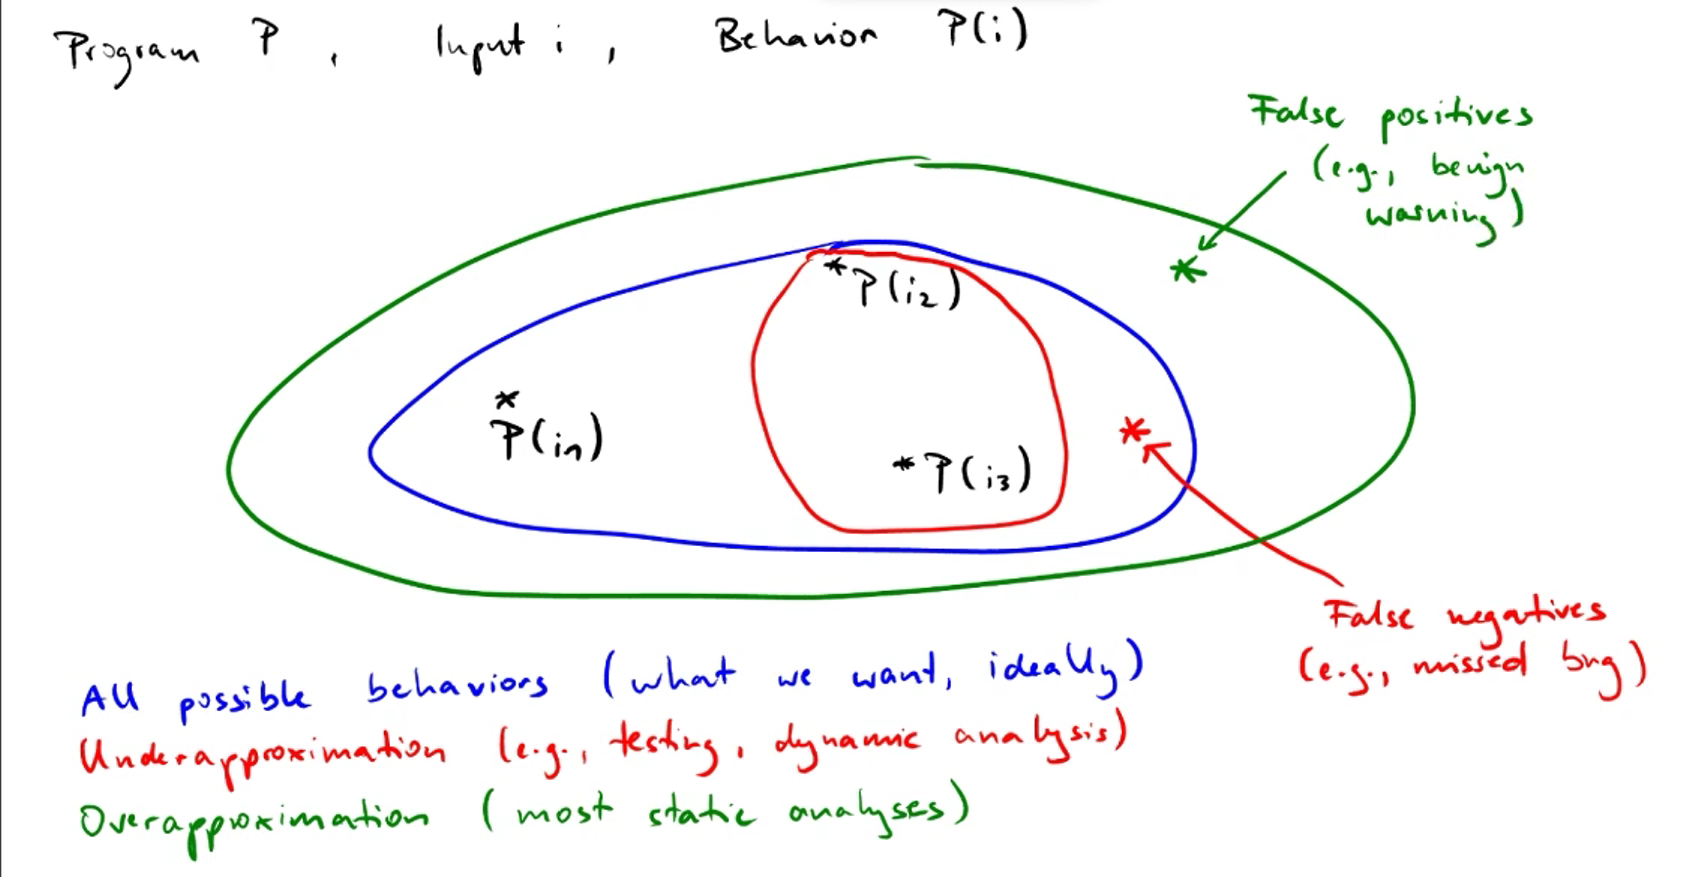 Program P, Input i, Behavior P(i)
False positives
(e.g., benign
warning)
* P(i₂)
*
*
P(i₁)
*
* P(i₃)
False negatives
(e.g., missed bug)
All possible behaviors (what we want, ideally)
Underapproximation (e.g., testing, dynamic analysis)
Overapproximation (most static analyses)